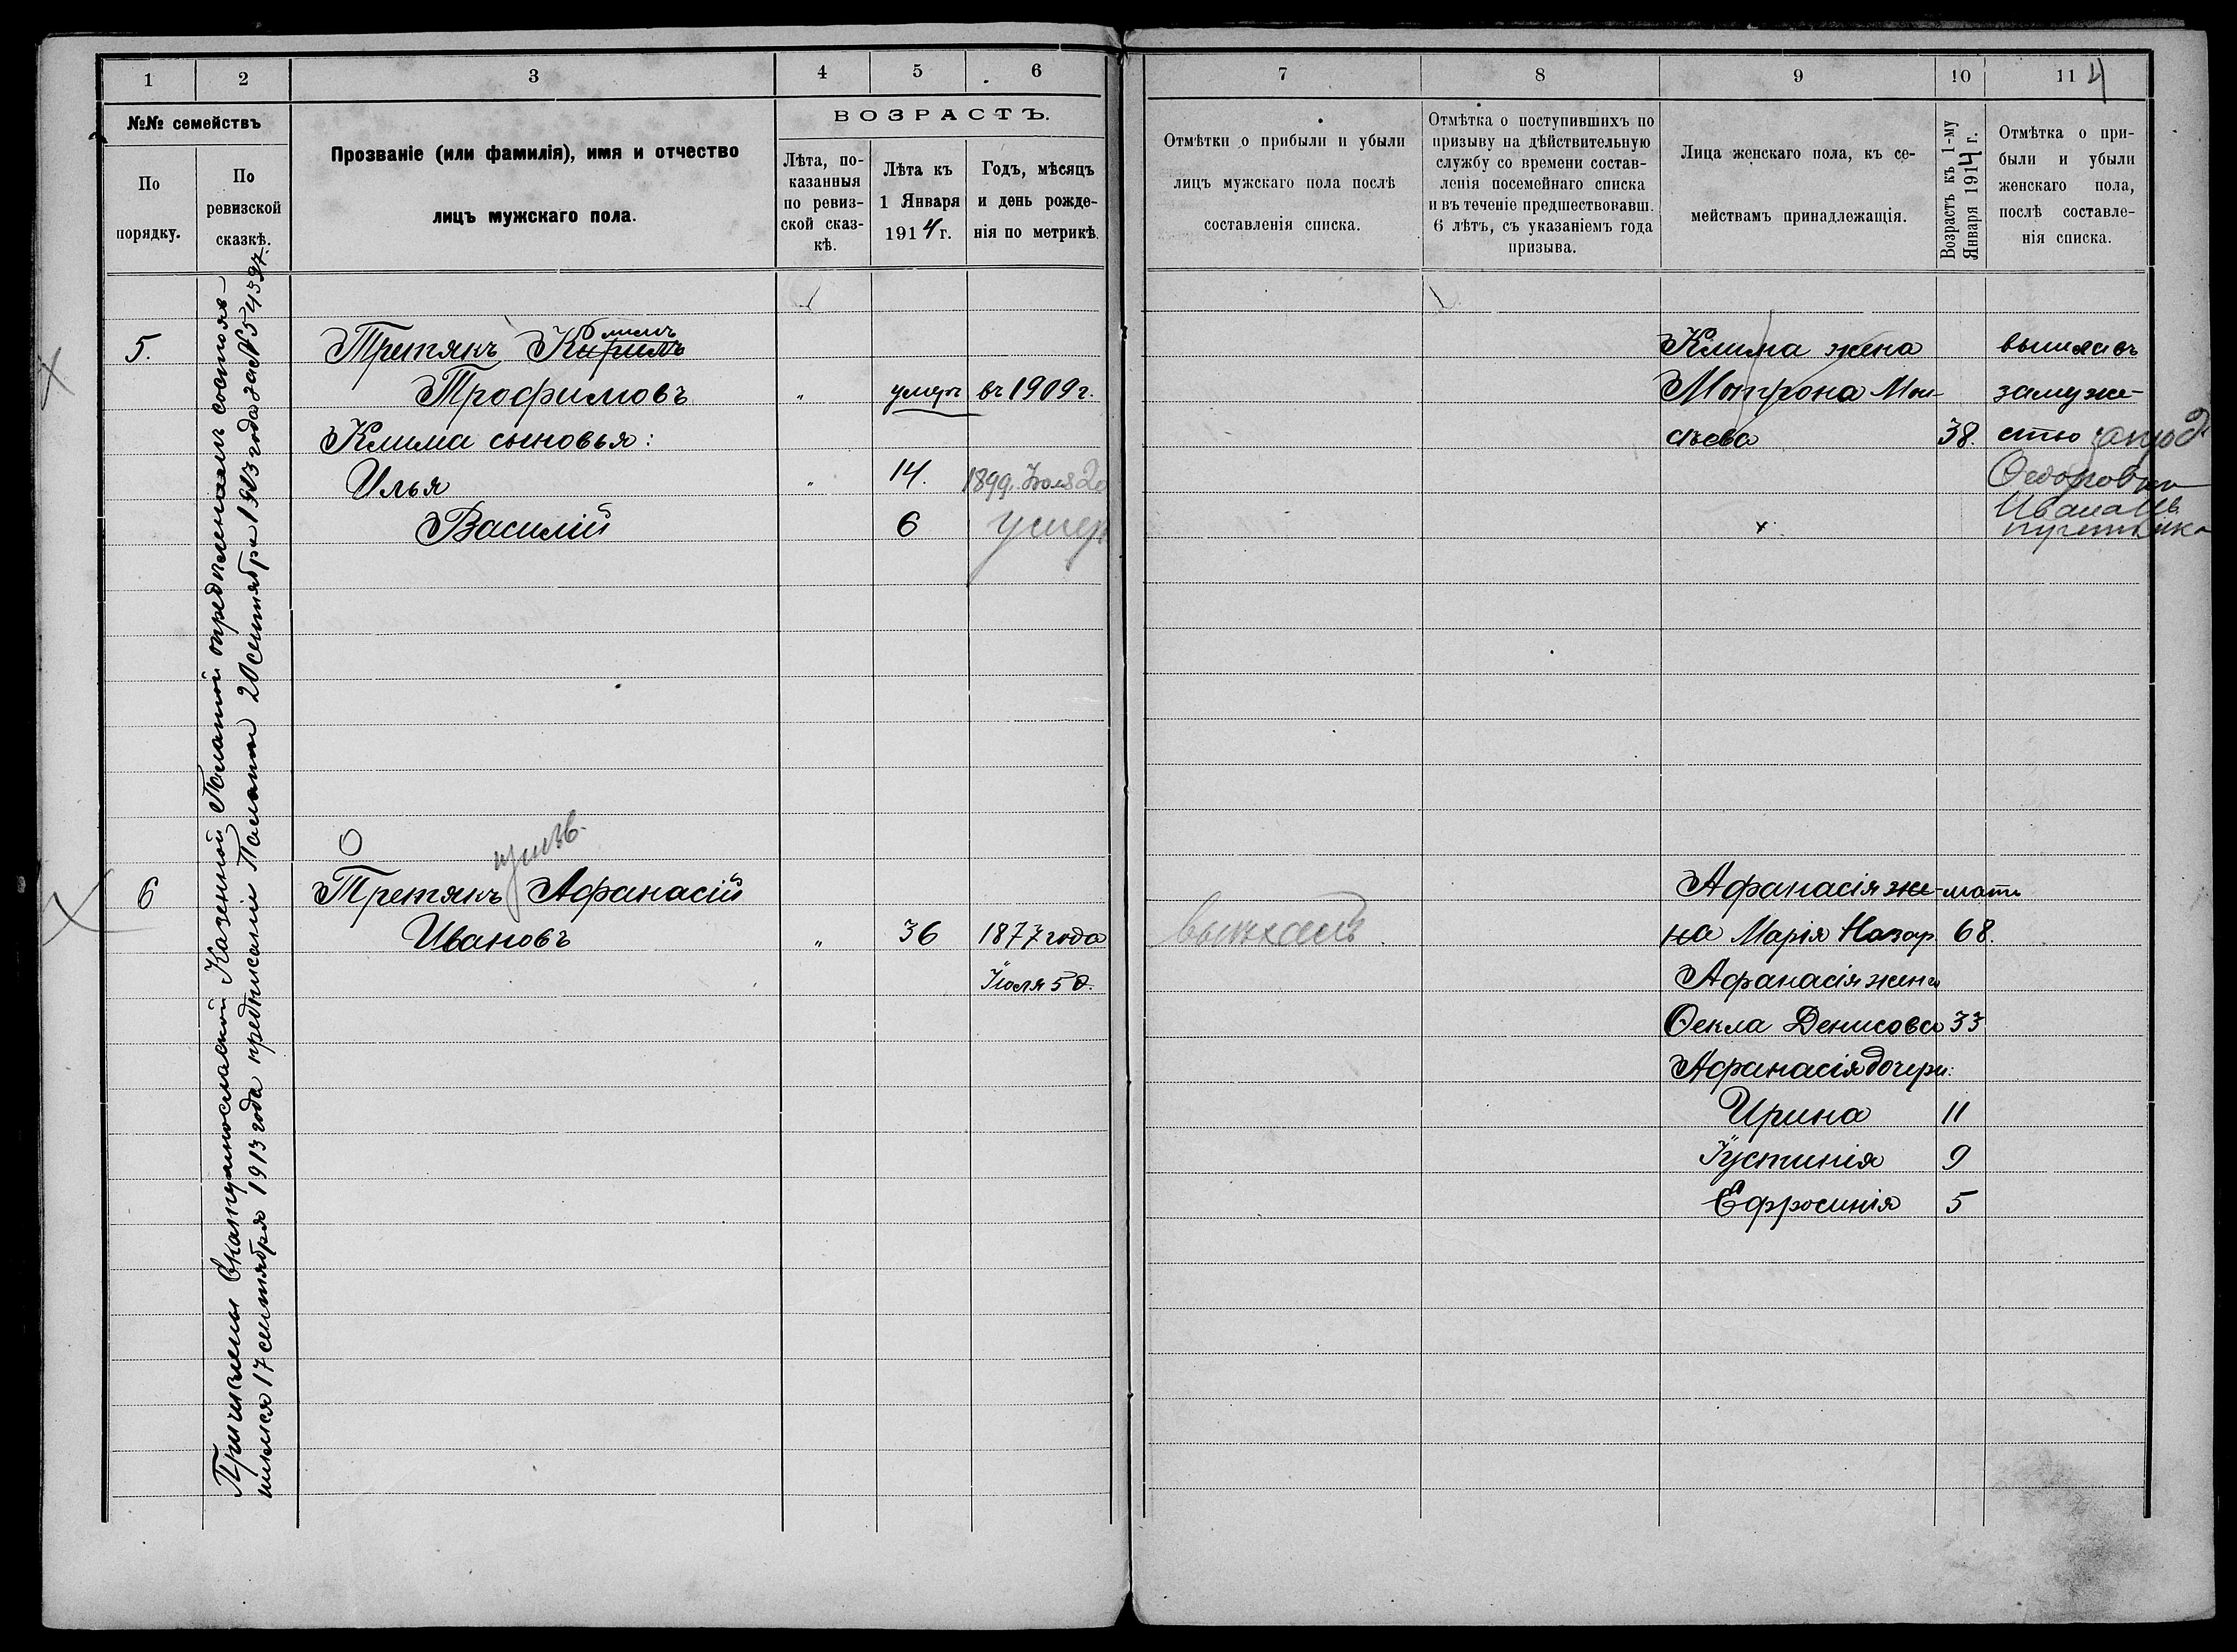 1 2 3 4 5 6
№№ семействъ
По порядку.
По ревизской сказкѣ.
Прозваніе (или фамилія), имя и отчество
лицъ мужскаго пола.
ВОЗРАСТЪ.
Лѣта, по-
казанныя
по ревиз-
ской сказ-
кѣ.
Лѣта къ
1 Января
1914 г.
Годъ, мѣсяцъ
и день рожде-
нія по метрикѣ.
Причислены Екатеринославской Казенной Палатой опредѣленіемъ состояв-
шимся 17 сентября 1913 года предписаніи Палаты 20 сентября 1913 года за №
5. Третякъ Климъ
Трофимовъ " умеръ въ 1909 г.
Клима сыновья:
Илья " 14. 1899. Іюля 20
Василій 6 умеръ
6 Третякъ Афанасій
Ивановъ " 36 1877 года
Іюля 5 д.
7 8 9 10 11 4
Отмѣтки о прибыли и убыли
лицъ мужскаго пола послѣ
составленія списка.
Отмѣтка о поступившихъ по
призыву на дѣйствительную
службу со времени состав-
ленія посемейнаго списка
и въ теченіе предшествовавш.
6 лѣтъ, съ указаніемъ года
призыва.
Лица женскаго пола, къ се-
мействамъ принадлежащія.
Возрастъ къ 1-му
Января 1914 г.
Отмѣтка о при-
были и убыли
женскаго пола,
послѣ составле-
нія списка.
Клима жена вышла въ
Матрона Мои- замуже-
сѣева 38. ство
Ивана
Афанасія же- мать
на Марія Назар. 68.
выѣхалъ
Афанасія жена
Ѳекла Денисова 33
Афанасія дочери:
Ирина 11
Іустинія 9
Ефросинія 5